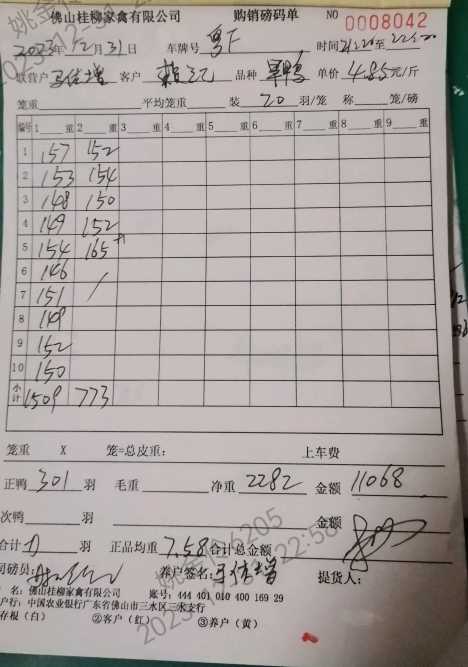 佛山桂柳家禽有限公司 购销磅码单 NO 0008042
2023年12月31日 车牌号 粤F 时间21:20至22:20
联营户 客户 赖记 品种 单价 4.85元/斤
笼重 平均笼重 装 20 羽/笼 称 笼/磅
编号 1 重 2 重 3 重 4 重 5 重 6 重 7 重 8 重 9 重
1 157 152
2 153 154
3 148 150
4 149 152
5 154 165
6 146
7 151 /
8 149
9 152
10 150
小计 1509 773
笼重 X 笼=总皮重: 上车费
正鸭 301 羽 毛重 净重 2282 金额 11068
次鸭 羽 金额
合计 羽 正品均重 7.58 合计总金额
司磅员: 养户签名: 提货人:
名: 佛山桂柳家禽有限公司 账号: 444 401 010 400 169 29
户行: 中国农业银行广东省佛山市三水区三水支行
存根（白） ②客户（红） ③养户（黄）